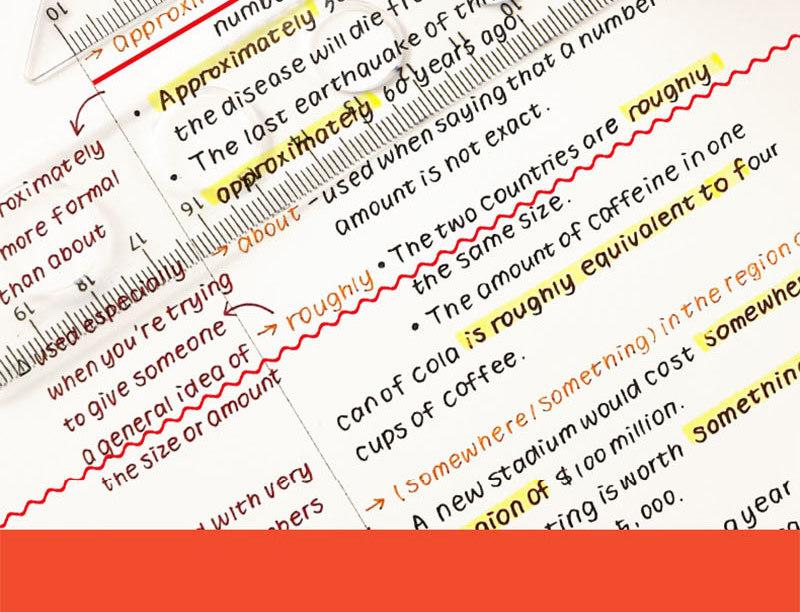 → approxim
numb
• Approximately
the disease will die fr
• The last earthquake of th
approximately 60 years ago.
roximately
more formal
than about
→ about - used when saying that a number
amount is not exact.
→ roughly • The two countries are roughly
the same size.
• The amount of caffeine in one
can of cola is roughly equivalent to four
cups of coffee.
used especially
when you're trying
to give someone
a general idea of
the size or amount
→ (somewhere/something) in the region o
A new stadium would cost somewhe
gion of $100 million.
ting is worth something
5,000.
a year
d with very
bers
10
15
14
16
17
18
19